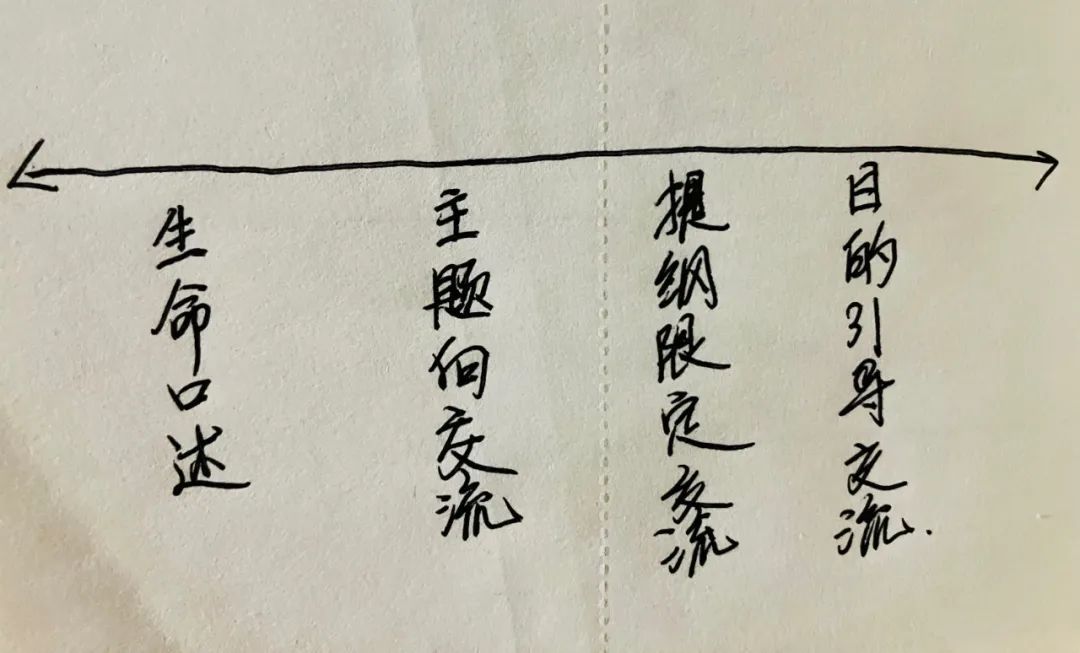 生命口述
主题向交流
提纲限定交流
目的引导交流.